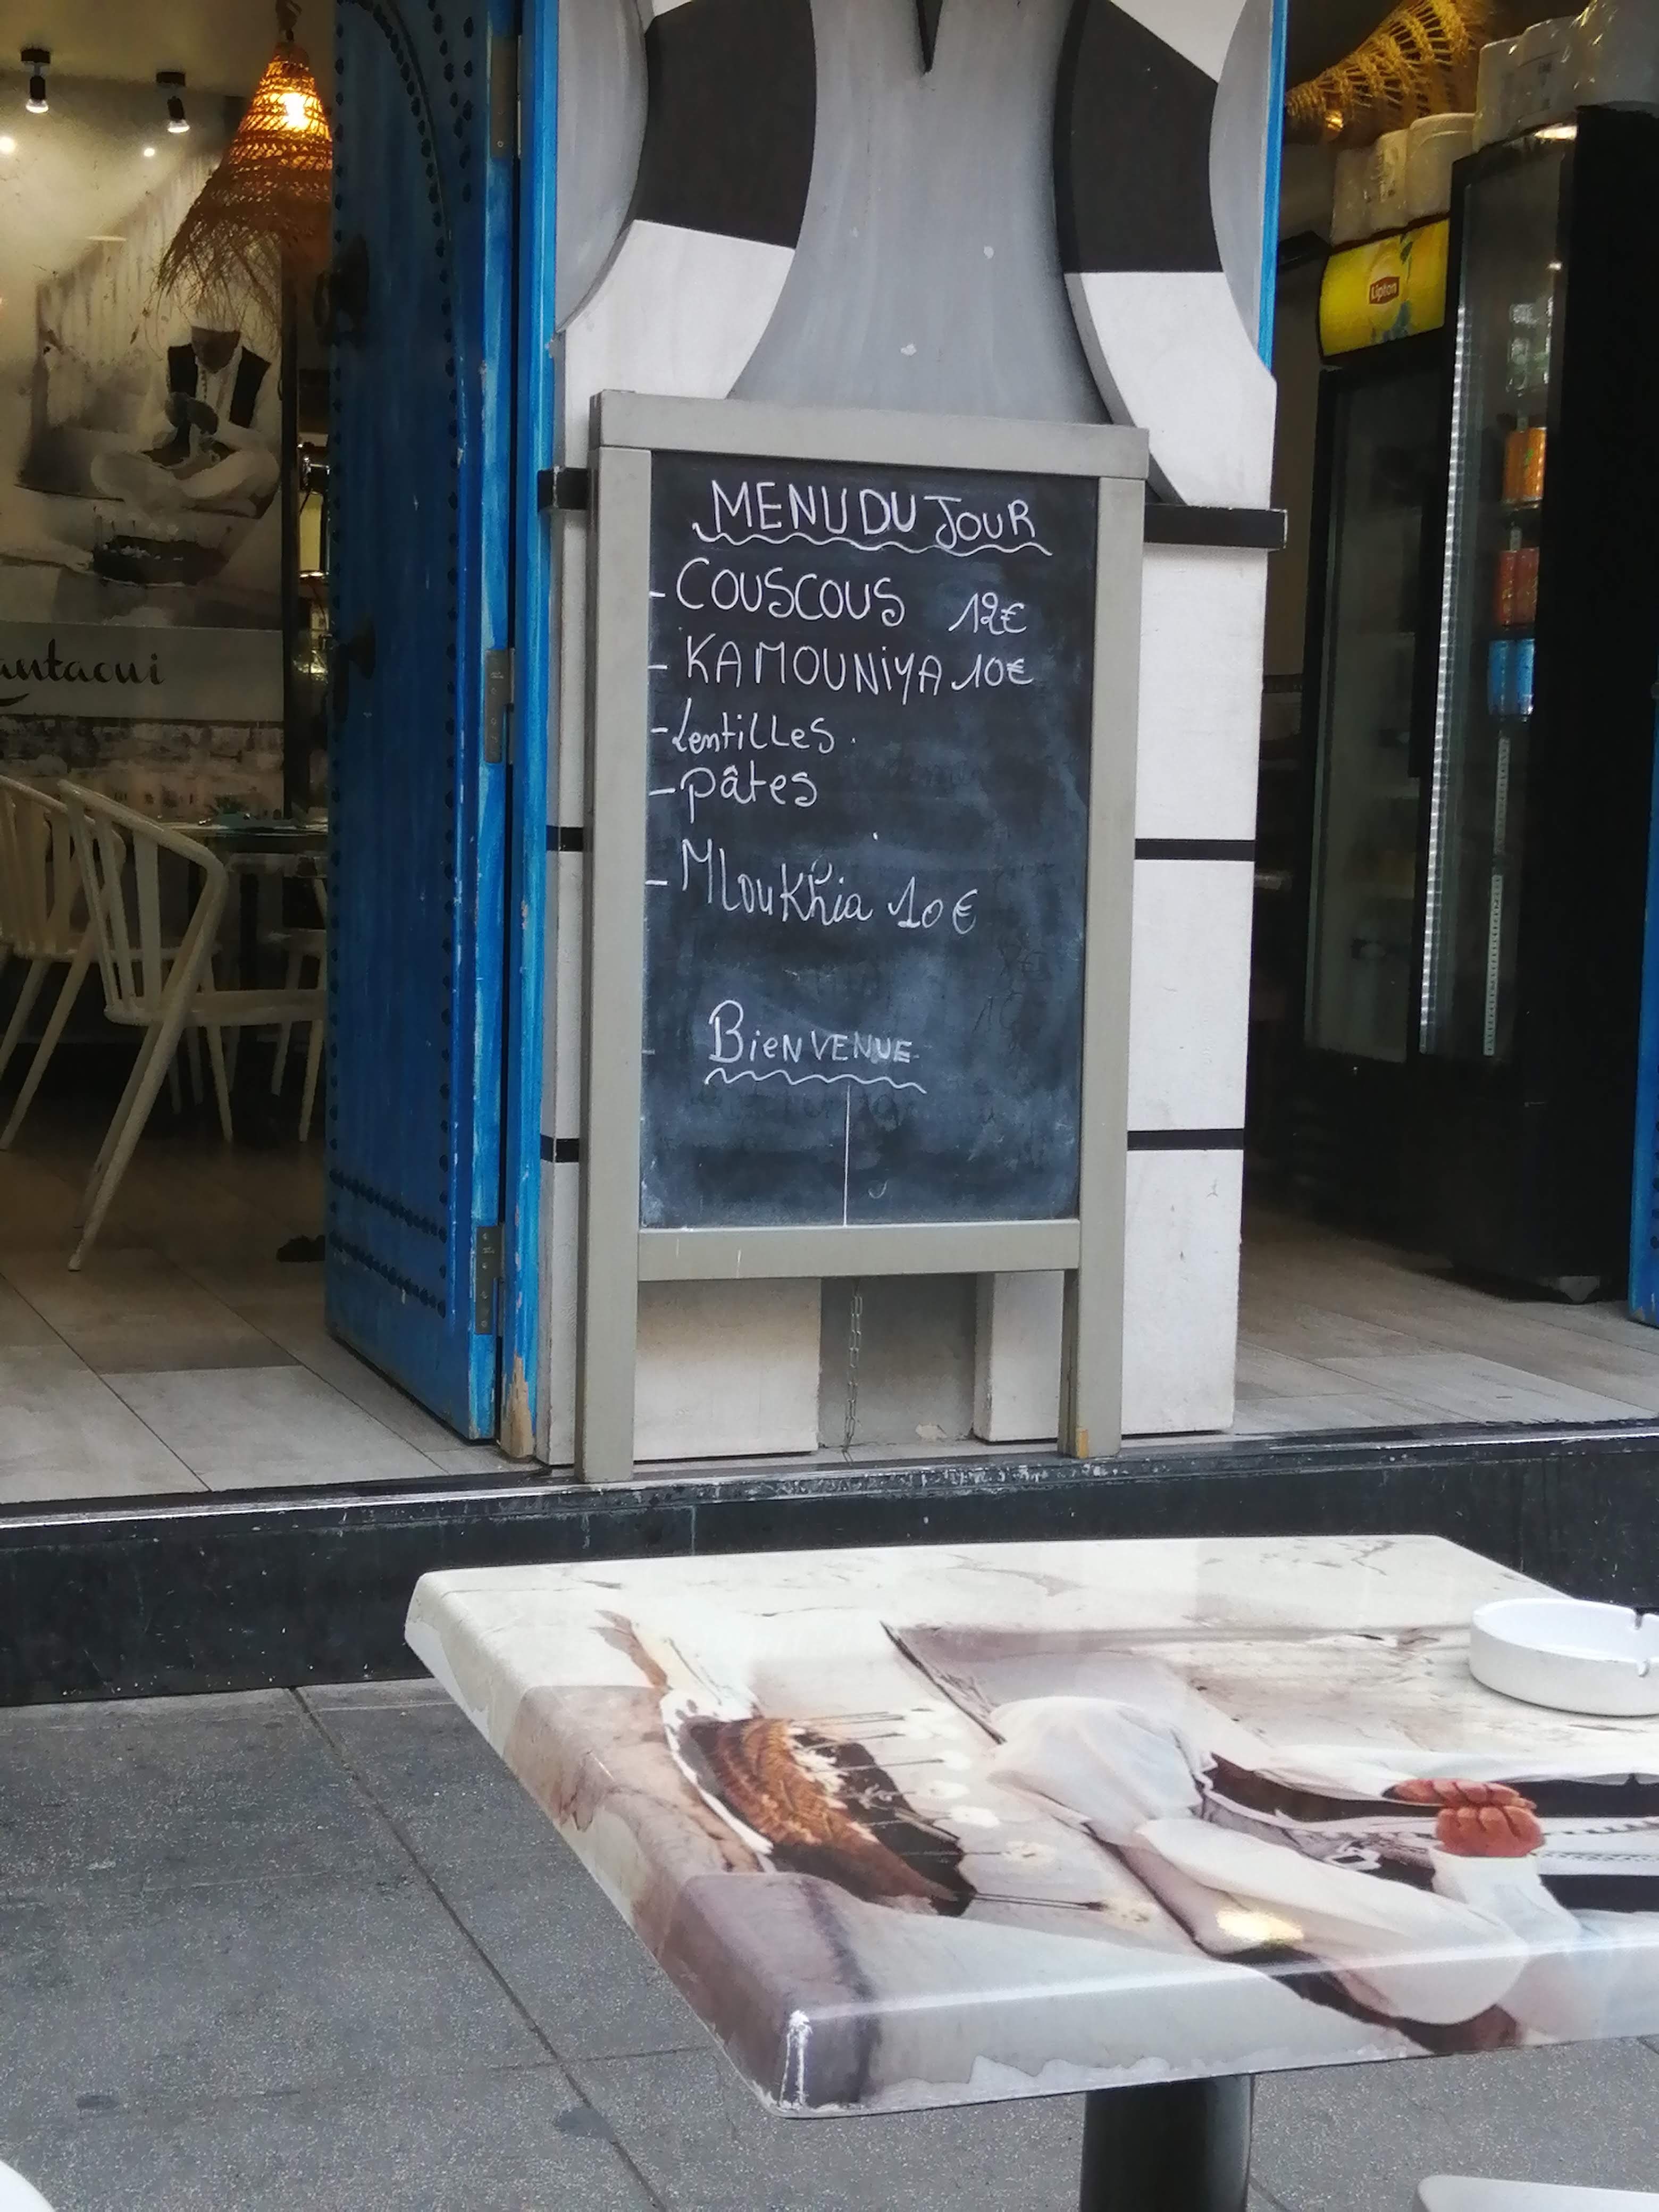 MENU DU JOUR
- COUSCOUS 12€
- KAMOUNiYA 10€
- Lentilles.
- pâtes
- Mloukhia 10€
BienVENUE
Lipton